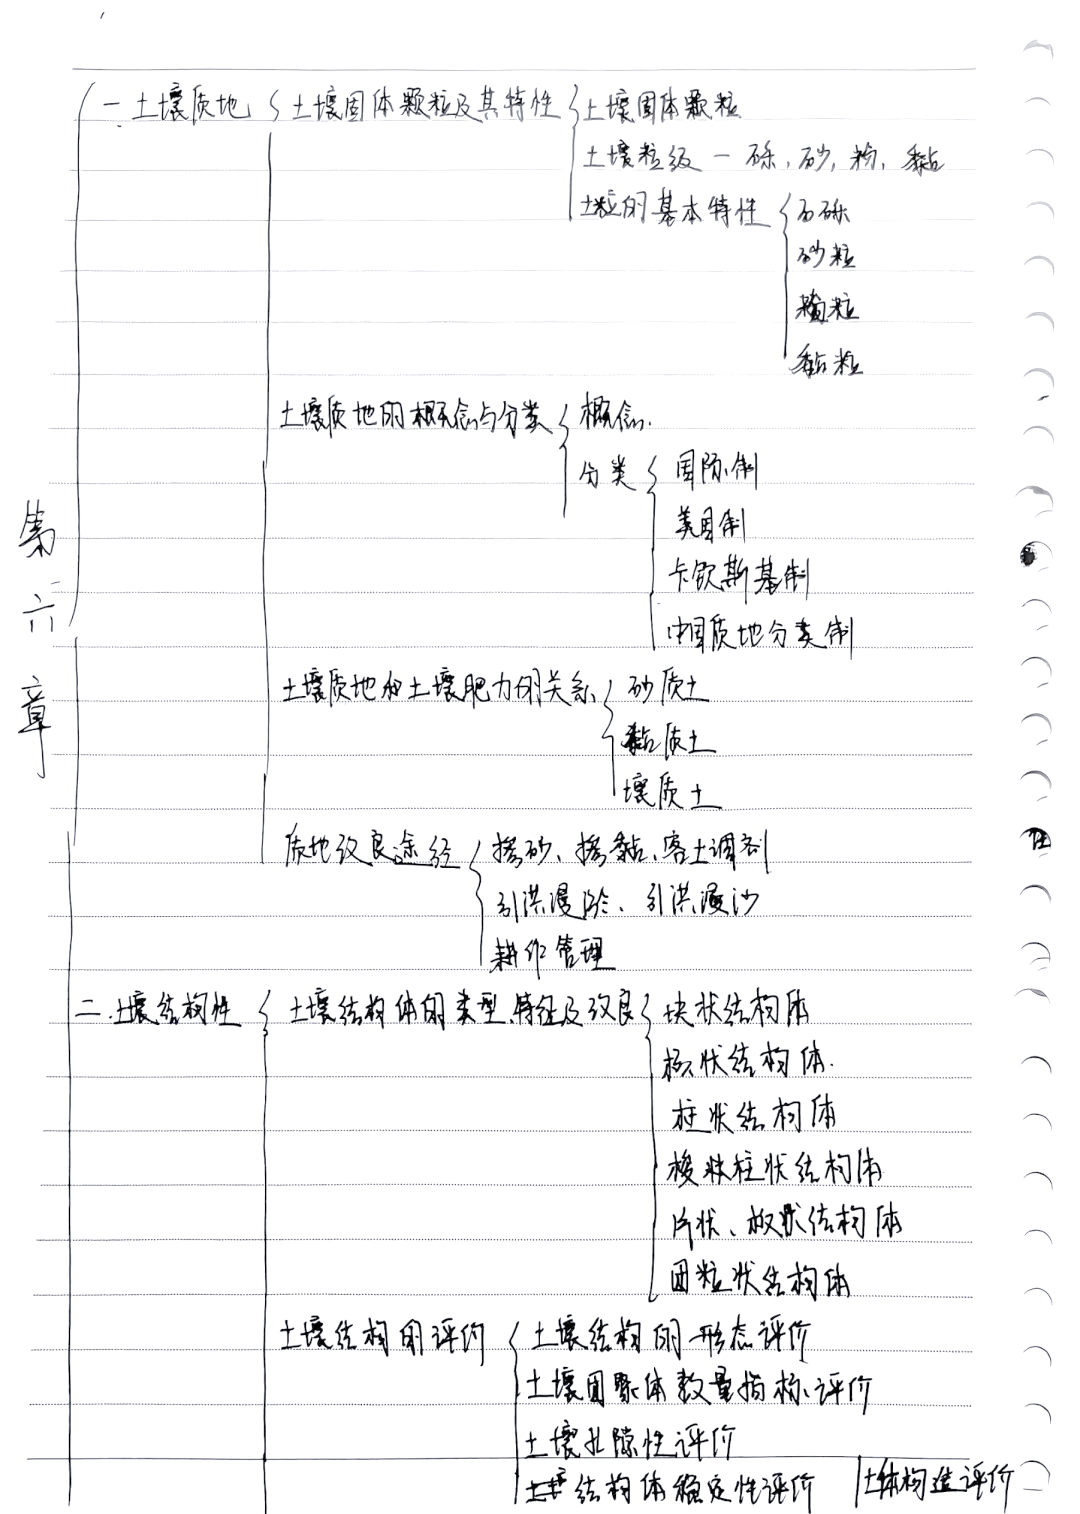 第六章
一.土壤质地 土壤固体颗粒及其特性 土壤固体颗粒
土壤粒级－砾、砂、粉、黏
土粒的基本特性 石砾
砂粒
粒
黏粒
土壤质地的概念与分类 概念.
分类 国际制
美国制
卡钦斯基制
中国质地分类制
土壤质地和土壤肥力的关系 砂质土
黏质土
壤质土
质地改良途径 掺砂、掺黏、客土调剂
引洪漫淤、引洪漫沙
耕作管理
二.土壤结构性 土壤结构体的类型、特征及改良 块状结构体
核状结构体.
柱状结构体
棱状柱状结构体
片状、板状结构体
团粒状结构体
土壤结构的评价 土壤结构的形态评价
土壤团聚体数量指标评价
土壤孔隙性评价
土壤结构体稳定性评价 土体构造评价